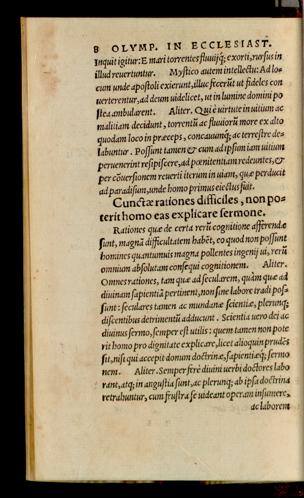 8 OLYMP. IN ECCLESIAST.
Inquit igitur: E mari torrentes fluuijq́; exorti, rursus in
illud reuertuntur. Mystico autem intellectu: Ad lo-
cum unde apostoli exierunt, illuc fecerũt ut fideles con
uerterentur, ad deum uidelicet, ut in lumine domini po
stea ambularent. Aliter. Qui è uirtute in uitium ac
malitiam decidunt, torrentũ ac fluuiorũ more ex alto
quodam loco in præceps, concauumq́; ac terrestre de-
labuntur. Possunt tamen & cum ad ipsum iam uitium
peruenerint resipiscere, ad pœnitentiam redeuntes, &
per cõuersionem reuerti iterum in uiam, quæ perducit
ad paradisum, unde homo primus eiectus fuit.
Cunctæ rationes difficiles, non po-
terit homo eas explicare sermone.
Rationes quæ de certa rerũ cognitione afferendæ
sunt, magnã difficultatem habẽt, eo quod non possunt
homines quantumuis magna pollentes ingenij ui, rerũ
omnium absolutam consequi cognitionem. Aliter.
Omnes rationes, tam quæ ad secularem, quàm quæ ad
diuinam sapientiã pertinent, non sine labore tradi pos-
sunt: seculares tamen ac mundanæ scientiæ, plerunq́;
discentibus detrimentũ adducunt. Scientia uero dei ac
diuinus sermo, semper est utilis: quem tamen non pote
rit homo pro dignitate explicare, licet alioquin prudẽs
sit, nisi qui accepit donum doctrinæ, sapientiæq́; sermo
nem. Aliter. Semper ferè diuini uerbi doctores labo
rant, atq́; in angustia sunt, ac plerunq́; ab ipsa doctrina
retrahuntur, cum frustra se uideant operam insumere,
ac laborem